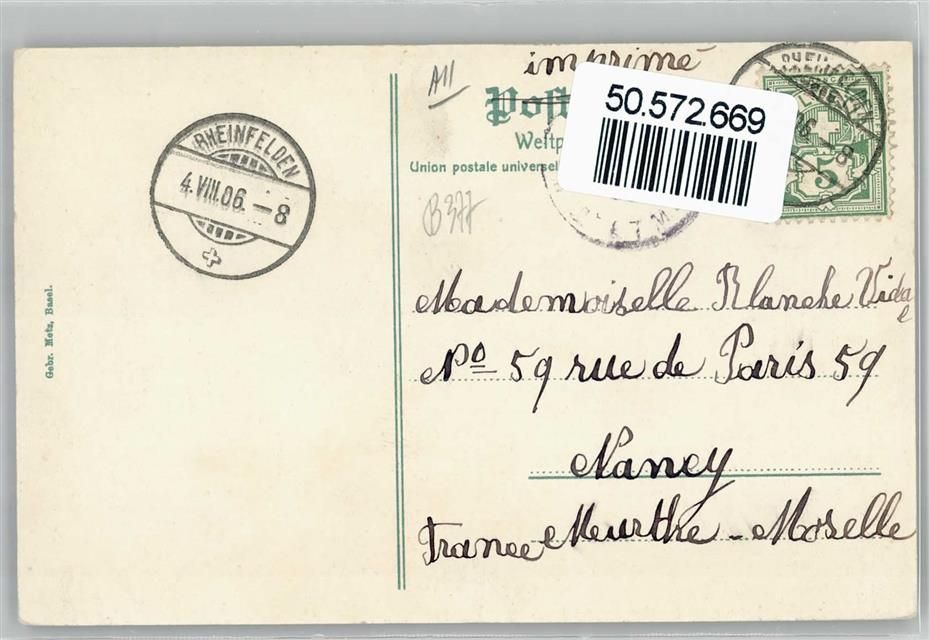 imprimé
A11
Post
50.572.669
Weltp
Union postale universel
RHEINFELDEN
4.VIII.06.–8
B377
5
Mademoiselle Blanche Vidal
No 59 rue de Paris 59
Nancy
France Meurthe-Moselle
Gebr. Metz, Basel.